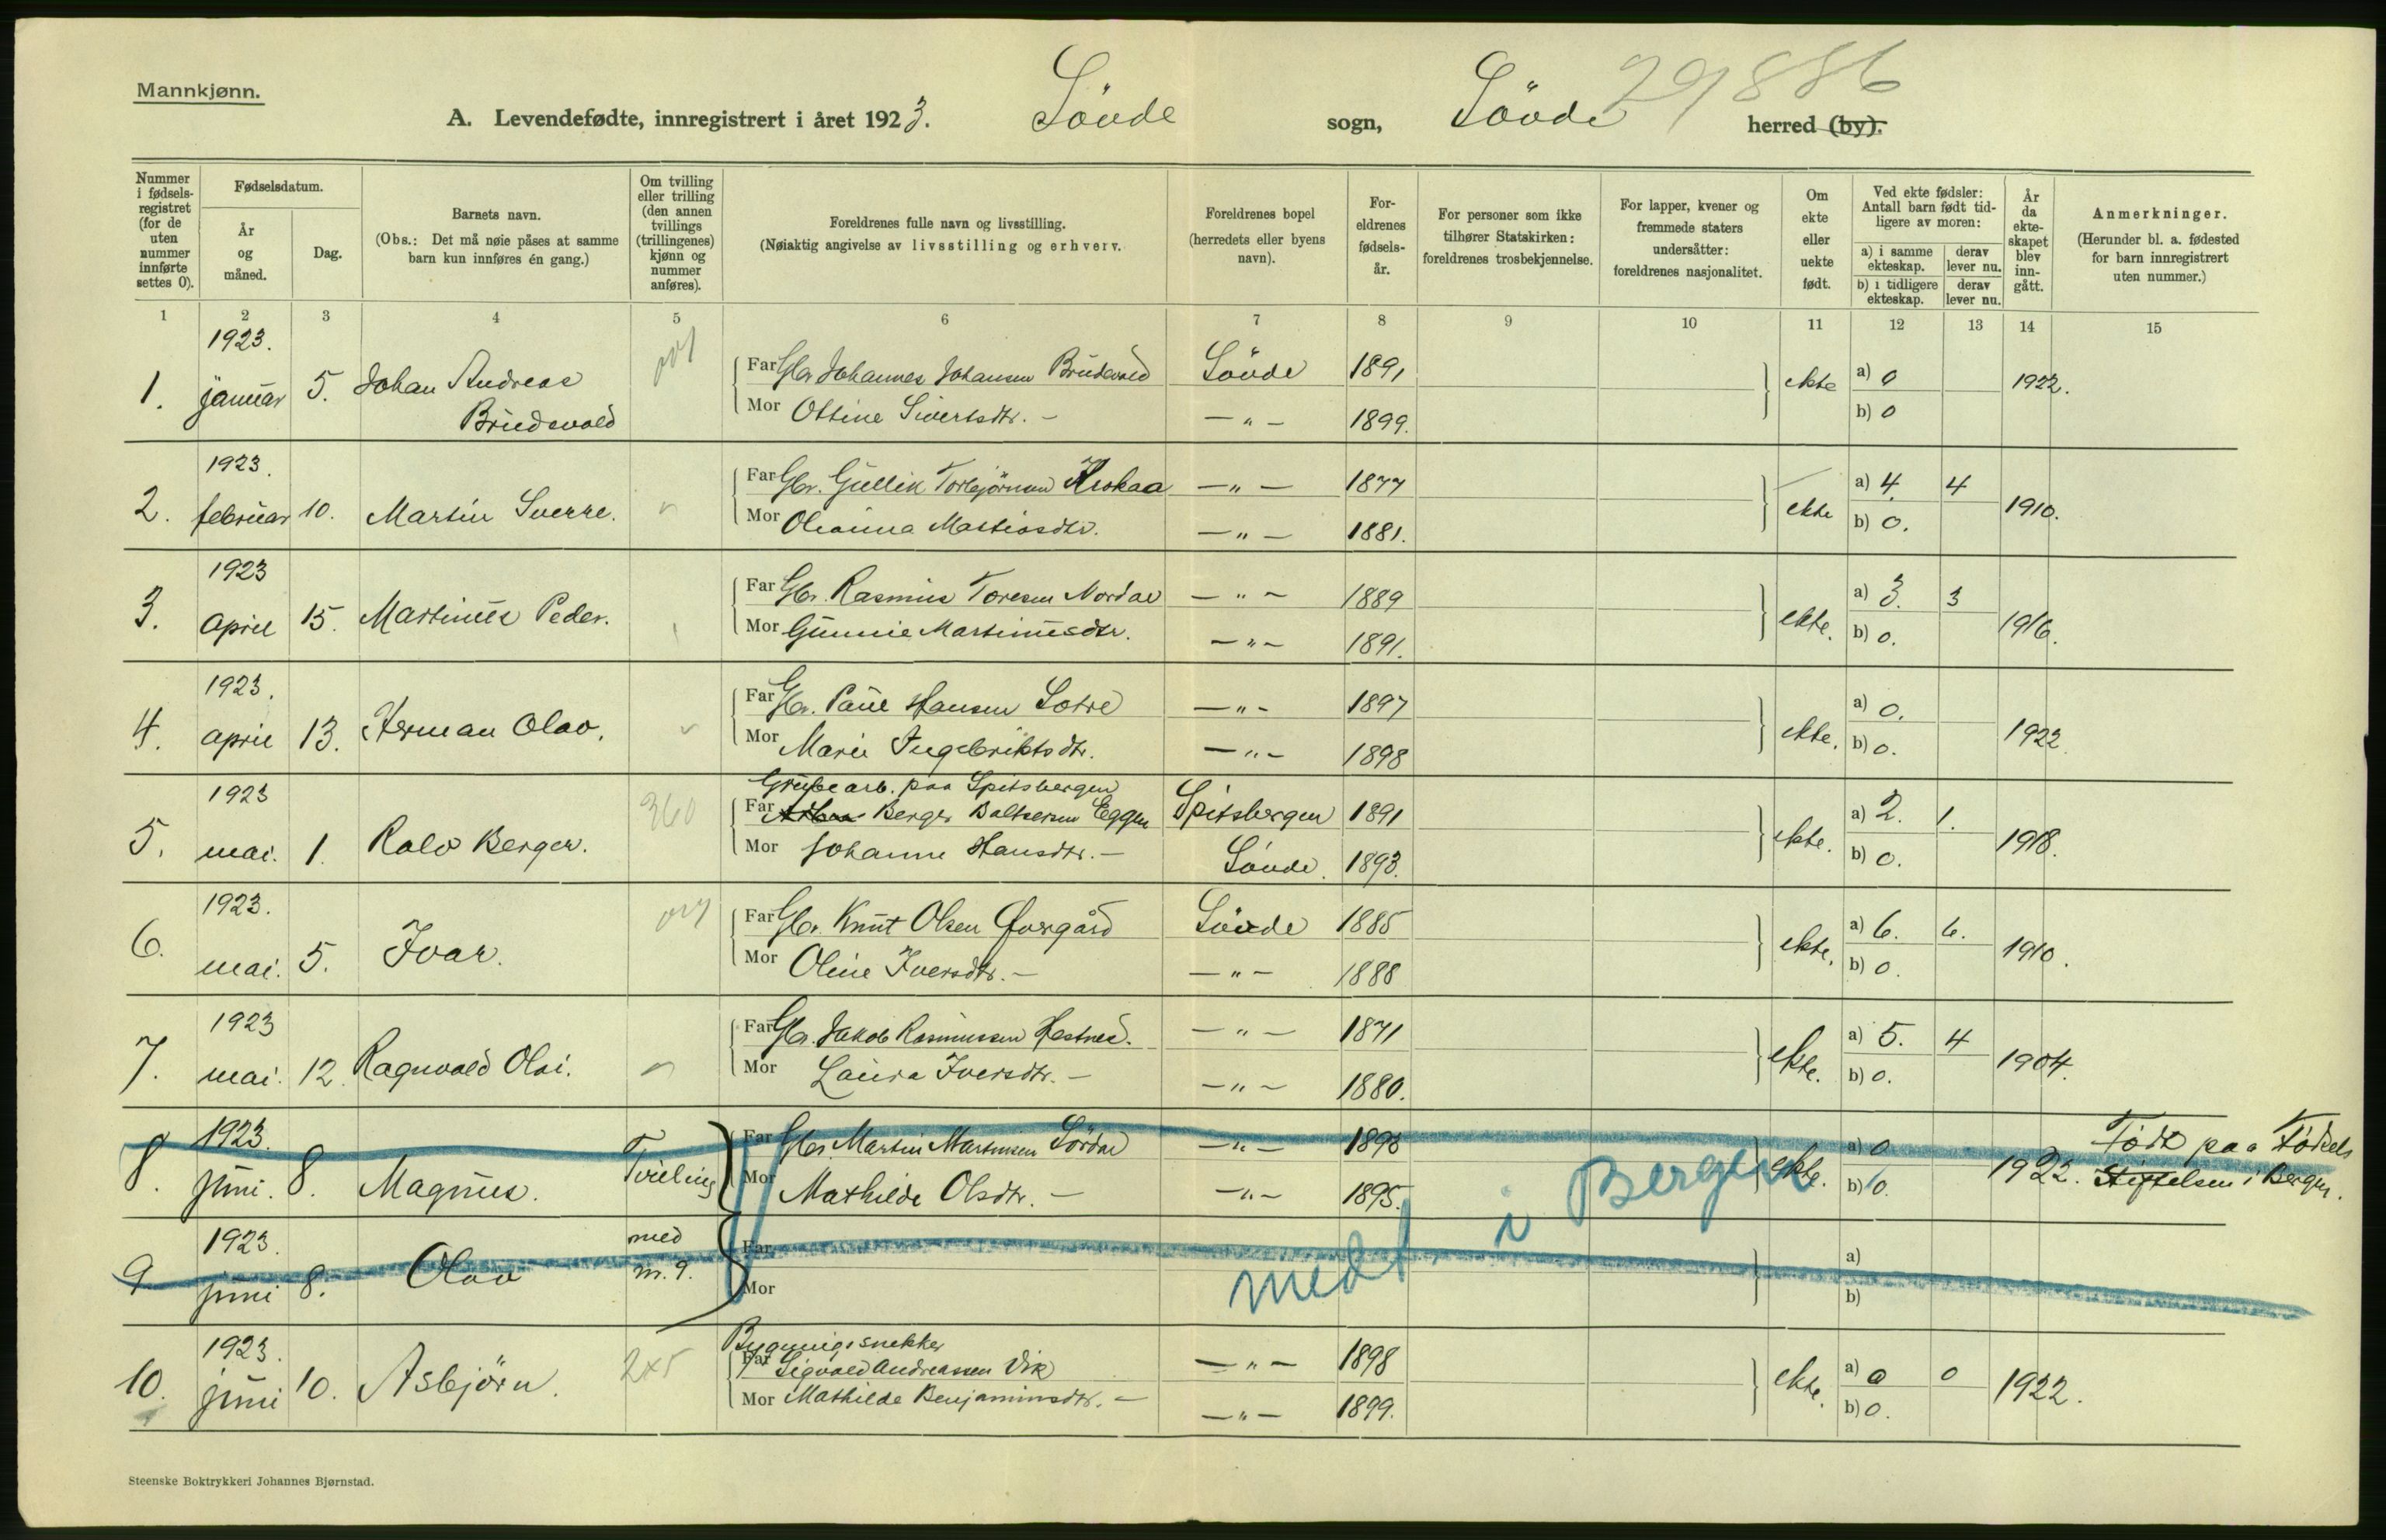 Mannkjønn.
A. Levendefødte, innregistrert i året 1923. Søvde sogn, Søvde herred (by).
29886
Nummer i fødsels-registret (for de uten nummer innførte settes 0).
Fødselsdatum.
År og måned.
Dag.
Barnets navn.
(Obs.: Det må nøie påses at samme barn kun innføres én gang.)
Om tvilling eller trilling (den annen tvillings (trillingenes) kjønn og nummer anføres).
Foreldrenes fulle navn og livsstilling.
(Nøiaktig angivelse av livsstilling og erhverv.
Foreldrenes bopel (herredets eller byens navn).
For-eldrenes fødsels-år.
For personer som ikke tilhører Statskirken: foreldrenes trosbekjennelse.
For lapper, kvener og fremmede staters undersåtter: foreldrenes nasjonalitet.
Om ekte eller uekte født.
Ved ekte fødsler: Antall barn født tid-ligere av moren:
a) i samme ekteskap.
derav lever nu.
b) i tidligere ekteskap.
derav lever nu.
År da ekte-skapet blev inn-gått.
Anmerkninger.
(Herunder bl. a. fødested for barn innregistrert uten nummer.)
1 2 3 4 5 6 7 8 9 10 11 12 13 14 15
1923.
1. januar 5. Johan Andreas Brudevold
Far Gbr Johannes Johansen Brudevold Søvde 1891 ekte a) 0 1922.
Mor Ottine Sivertsdtr. - -"- 1899. b) 0
1923.
2. februar 10. Martin Sverre.
Far Gbr. Gullik Torbjörnsen Krokaa -"- 1877 ekte a) 4. 4 1910.
Mor Oleanna Mattiasdtr. -"- 1881. b) 0.
1923
3. april 15. Martinus Peder.
Far Gbr. Rasmus Toresen Nordal -"- 1889 ekte. a) 3. 3 1916.
Mor Gunnie Martinusdtr. -"- 1891. b) 0.
1923.
4. april 13. Herman Olav.
Far Gbr. Paul Hansen Sætre -"- 1897 ekte. a) 0. 1922
Mor Marie Ingebriktsdtr. -"- 1898 b) 0.
1923
5. mai. 1. Rolv Berger. 360
Grubearb. paa Spitsbergen
Far Berger Baltsersen Eggen Spitsbergen 1891 ekte. a) 2. 1. 1918.
Mor Johanne Hansdtr. - Søvde. 1893. b) 0.
1923.
6. mai. 5. Ivar.
Far Gbr. Knut Olsen Øvregård Søvde 1885 ekte. a) 6. 6. 1910.
Mor Oline Iversdtr. - -"- 1888 b) 0.
1923
7. mai. 12. Ragnvald Olai.
Far Gbr. Jakob Rasmussen Hestnes. -"- 1871 ekte. a) 5. 4 1904.
Mor Laura Iversdtr. - -"- 1880. b) 0.
1923.
8. juni. 8. Magnus. Tvilling
Far Gbr. Martin Martinsen Sördal -"- 1898 ekte. a) 0 1922. Född paa Fødsels
Mor Mathilde Olsdtr. - -"- 1895. b) 0. Stiftelsen i Bergen.
1923.
9. juni 8. Olav med nr. 9.
Far a)
Mor b)
medt. i Bergen
1923.
10. juni 10. Asbjörn. 245
Bygningssnekker
Far Sigvald Andreassen Vik -"- 1898 ekte. a) 0 0 1922.
Mor Mathilde Benjaminsdtr. - -"- 1899. b) 0.
Steenske Boktrykkeri Johannes Bjørnstad.